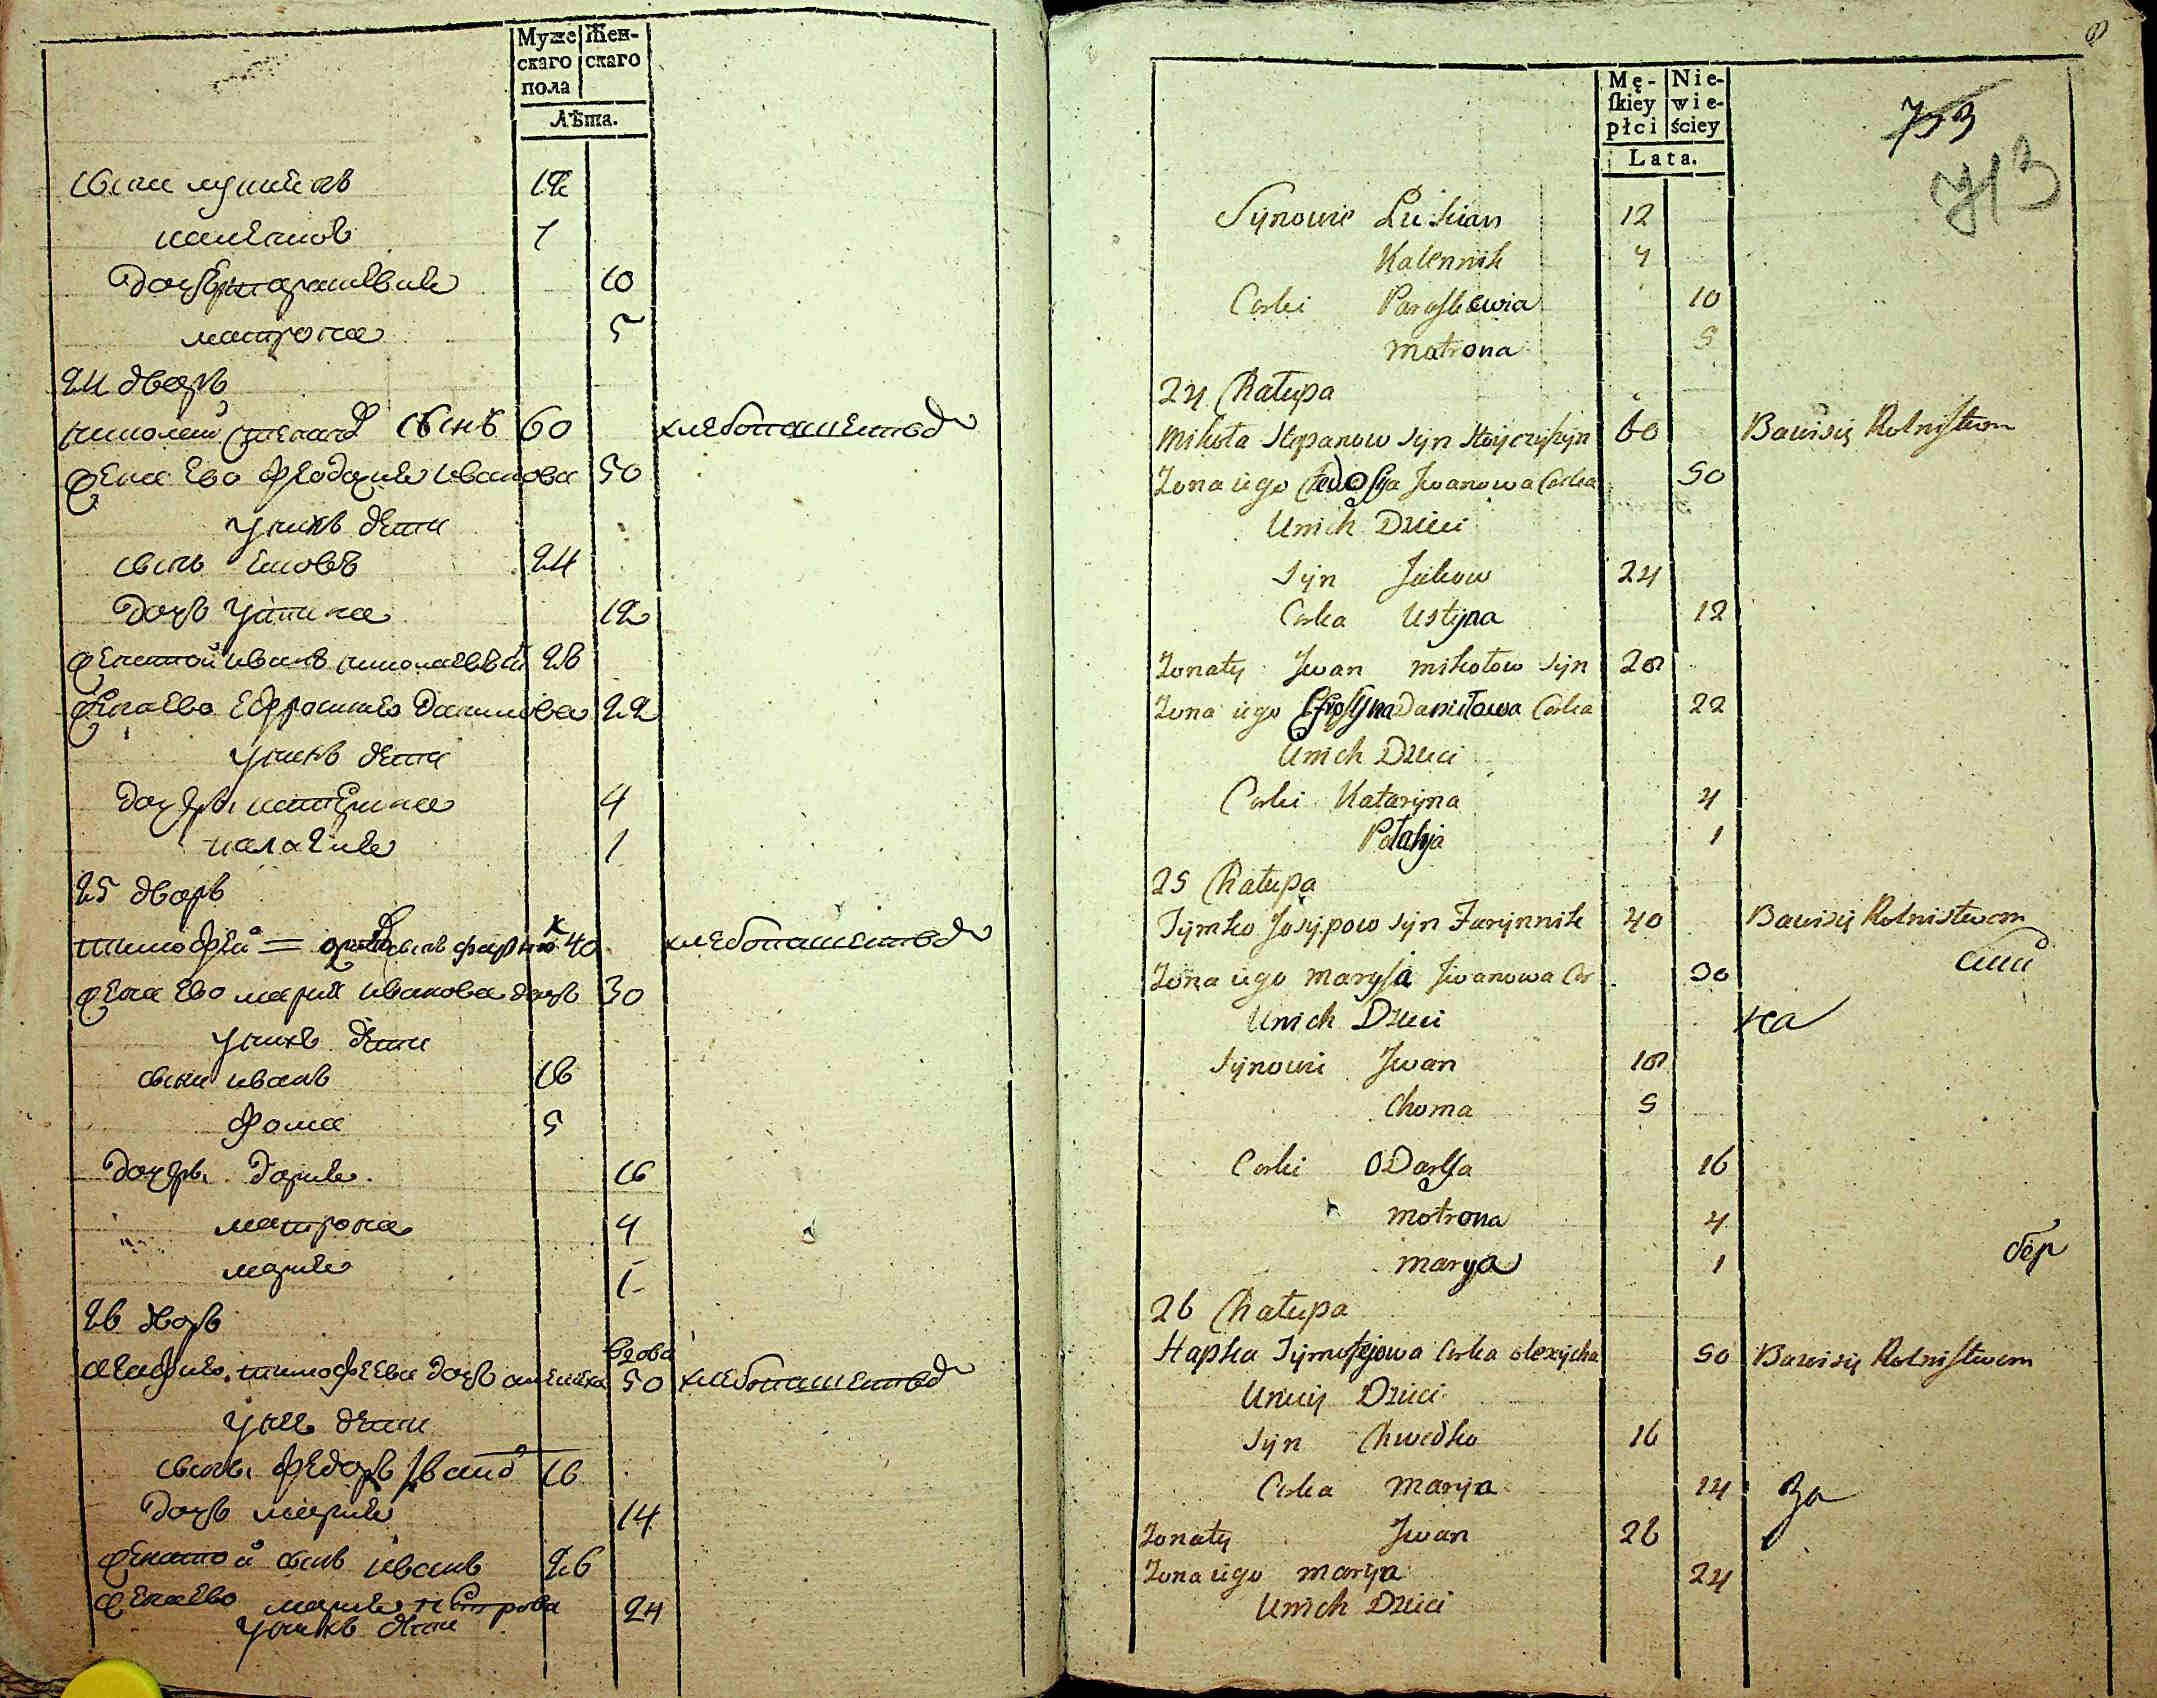 Муже Жен-
скаго скаго
пола
Лѣта.
сыни лукианъ 12
калѣникъ 7
дочери парасковия 10
матрона 5
24 дворъ
николай степановъ сынъ 60 хлебопашествомъ
жена ево феодосия иванова 50
у нихъ дети
сынъ яковъ 24
дочь устина 12
женатой иванъ николаевъ 28
жена ево ефросиния данилова 22
у нихъ дети
дочери катерина 4
палагия 1
25 дворъ
тимофей = осиповъ сынъ 40 хлебопашествомъ
жена ево мария иванова дочь 30
у нихъ дети
сыни иванъ 18
фома 5
дочери дария 16
матрона 4
мария 1
26 дворъ
вдова
агафия тимофеева дочь 50 хлебопашествомъ
у нея дети
сынъ федоръ 16
дочь мария 14
женатой сынъ иванъ 26
жена ево мария петрова 24
у нихъ дети
Mę- Nie-
ſkiey wie-
płci ściey
Lata.
733
713
Synowie Lukian 12
Kalennik 7
Corki Paraskewia 10
Motrona 5
24 Chałupa
Mikoła Stepanow Syn 60 Bawisię Rolnistwem
Zona iego Chwedosya Jwanowa Corka 50
Unich Dzieci
Syn Jakow 24
Corka Ustyna 12
Zonaty Jwan Mikołow Syn 28
Zona iego Efrosyna Daniłowa Corka 22
Unich Dzieci
Corki Kataryna 4
Połahja 1
25 Chałupa
Tymko Josypow Syn Farynnik 40 Bawisię Rolnistwem
Zona iego Marysia Jwanowa Cor 30
Unich Dzieci
на
Synowie Jwan 18
Choma 5
Corki Odarka 16
Motrona 4
Marya 1
26 Chałupa
Hapka Tymofejowa Corka Olexycha 50 Bawisię Rolnistwem
Uniey Dzieci
Syn Chwedko 16
Corka Marya 14 За
Zonaty Jwan 26
Zona iego Marya 24
Unich Dzieci